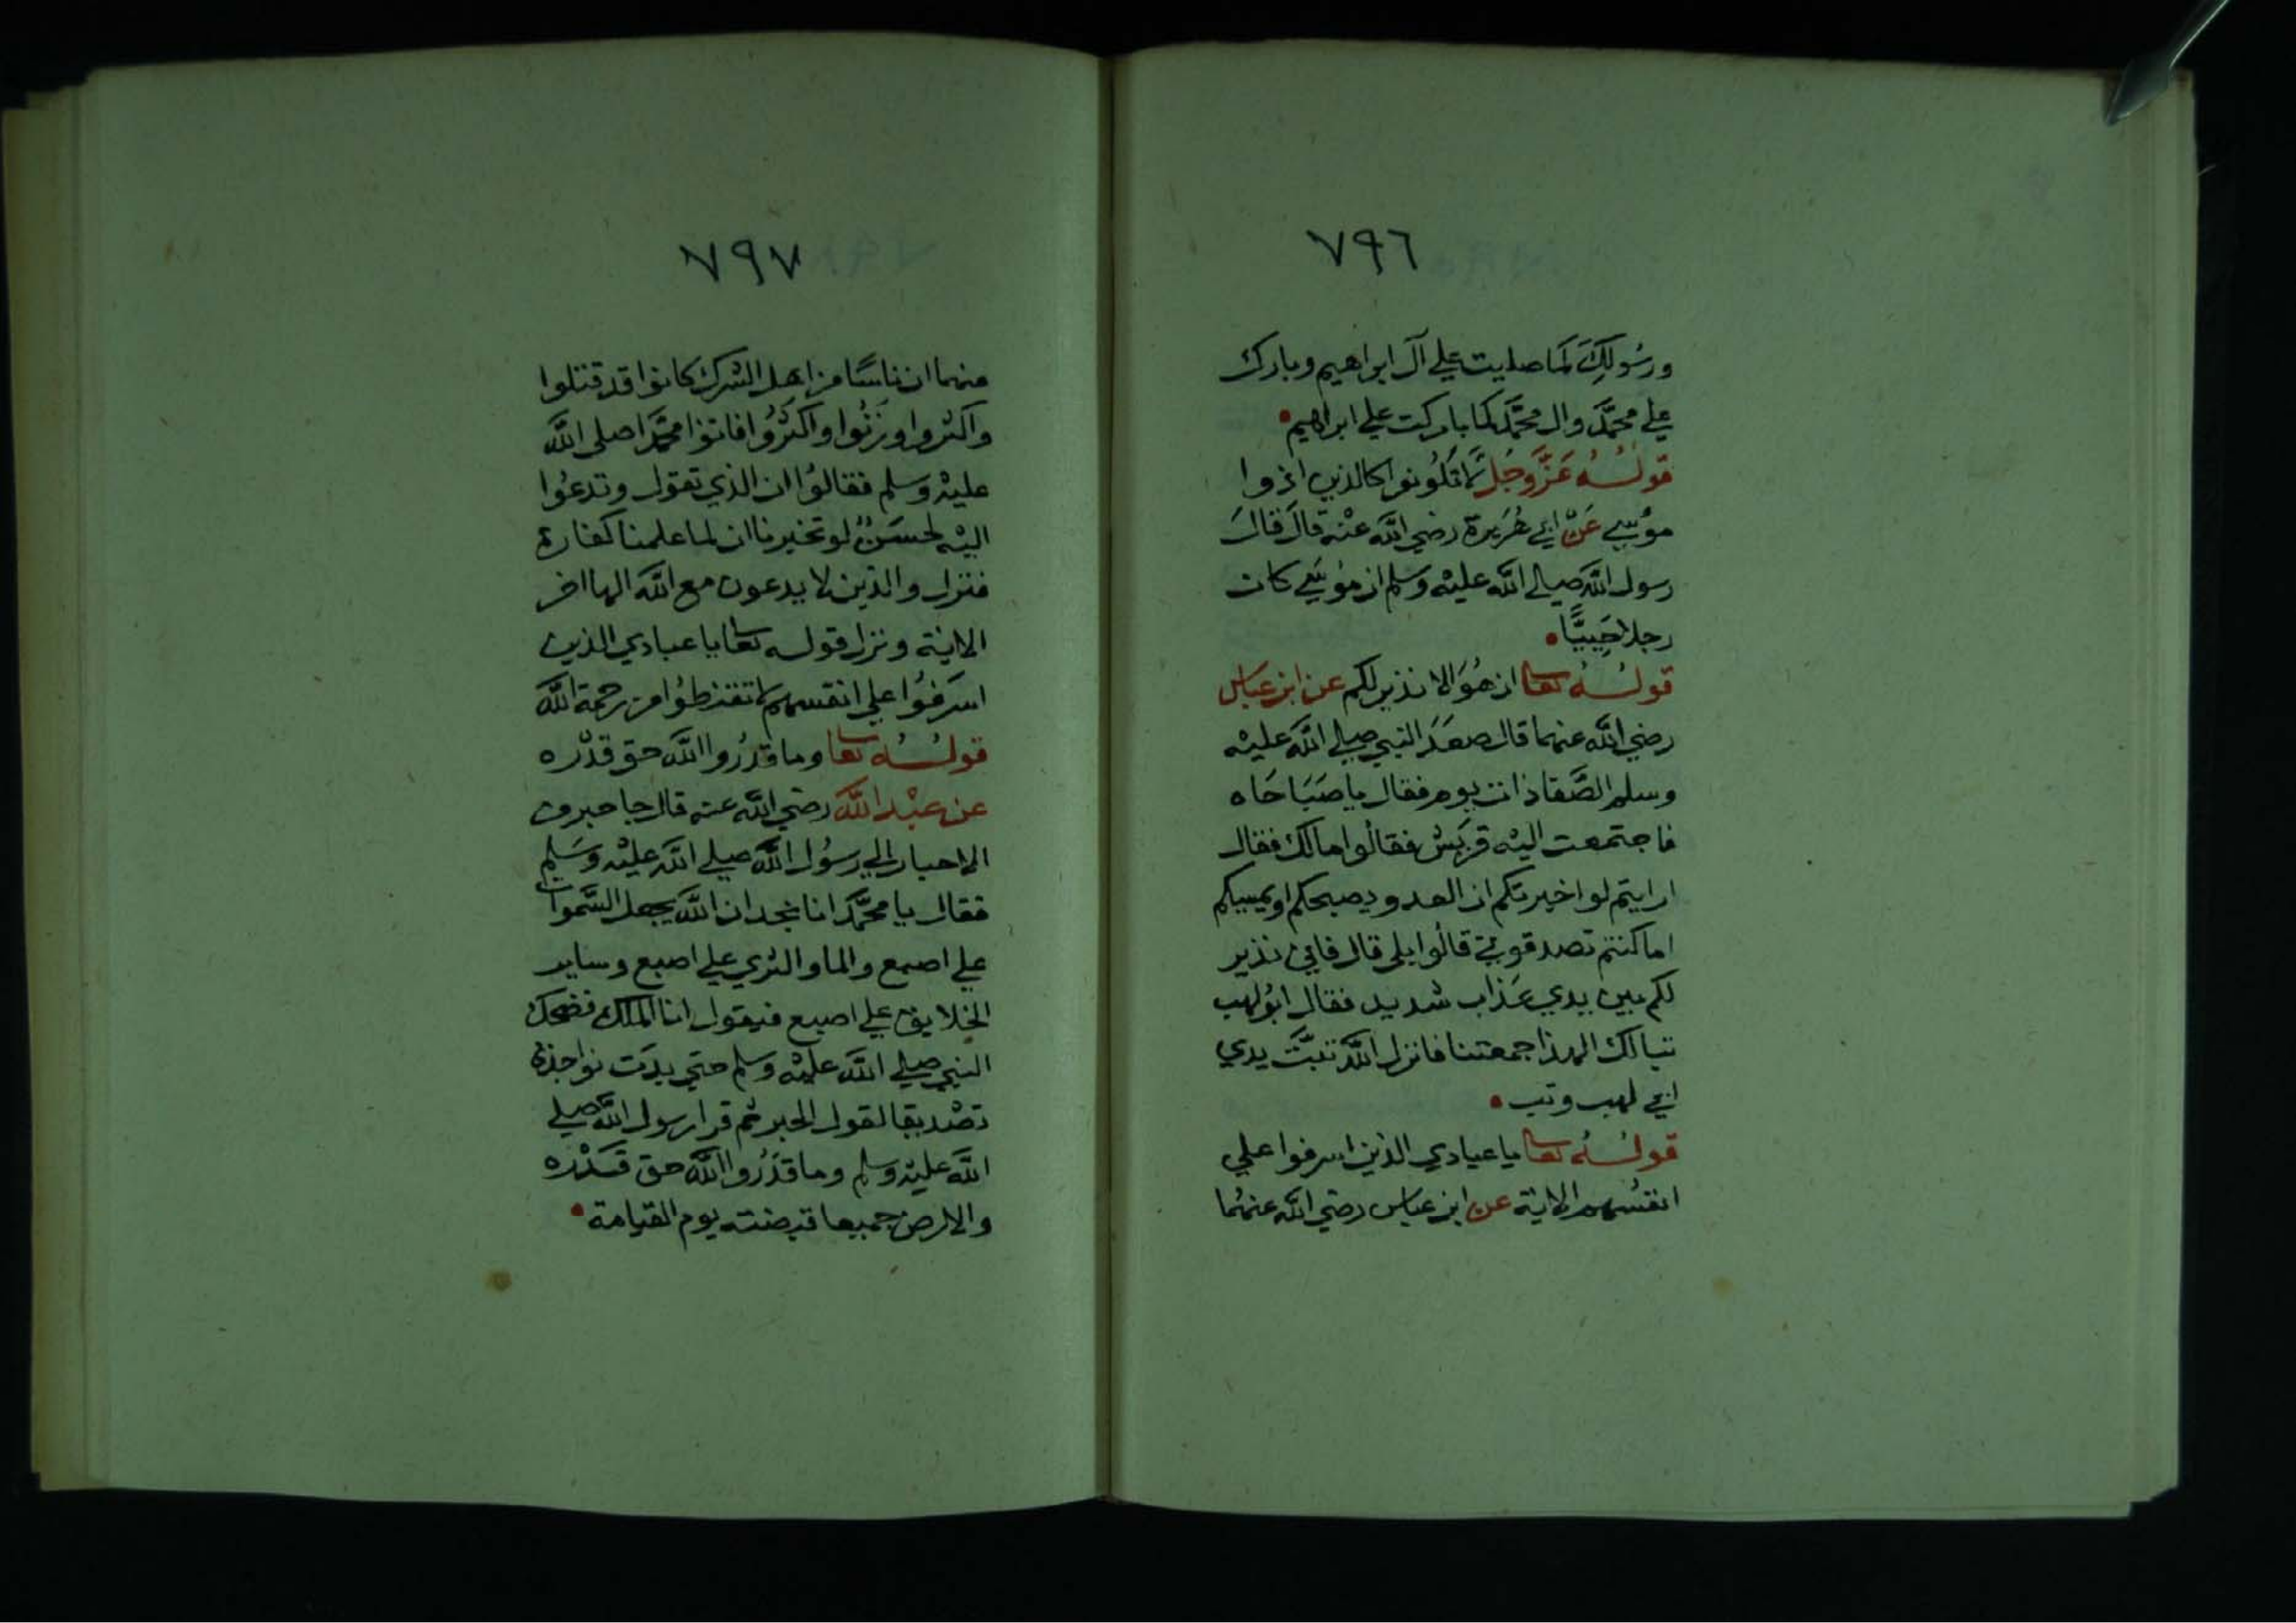 ٧٩٦
ورسُولِكَ كمَا صليت علي آل ابراهيم وبارك
علي محمَّد وال محمَّد كما باركت علي ابراهيم
قولُهُ عَزَّ وجَلَّ لا تَكُونوا كالذين اذوا
موُسي عَنْ ابي هُرَيرة رضي اللَّه عنْه قالَ قالَ
رسول اللَّه صلي اللَّه عليْه وسلم ان موُسَي كان
رجلا حَييًّا
قولُهُ تعالى ان هُوَ الا نذير لكم عن ابن عبَاس
رضي اللَّه عنهما قال صعَدَ النبي صلي اللَّه عليْه
وسلم الصَّفا ذات يوم فقال يا صَبَاحَاه
فاجتمعت اليْه قريْش فقالُوا مالك فقال
ارايتم لو اخبرتكم ان العدو يصبحكم او يمسيكم
اما كنتم تصدقوني قالُوا بلى قال فاني نذير
لكم بين يدي عَذاب شديد فقال ابُو لهب
تبا لك الهذا جمعتنا فانزل اللَّه تبَّتْ يدي
ابي لهب وتب
قولُهُ تعالى يا عبادي الذين اسرفوا علي
انفسُهم الاية عن ابن عباس رضي اللَّه عنهُما
٧٩٧
منهما ان ناسًا من اهل الشرك كانوا قد قتلوا
واكثروا وزنُوا واكثرُوا فاتوا محمَّدا صلى اللَّه
عليْه وسلم فقالوُا ان الذي تقول وتدعُوا
اليْه لحسَنٌ لو تخبرنا ان لما علمنا كفارة
فنزل والذين لا يدعون مع اللَّه الها اخر
الاية ونزل قوله تعالى يا عبادي الذين
اسرَفوُا علي انفسهم لا تقنطوُا من رحمة اللَّه
قولُهُ تعالى وما قدَرُوا اللَّه حق قدْره
عن عبْد اللَّه رضي اللَّه عنه قال جا حبر من
الاحبار الي رسوُل اللَّه صلي اللَّه عليْه وسَلم
فقال يا محمَّد انا نجد ان اللَّه يجعل السَّموات
علي اصبع والما والثري علي اصبع وساير
الخلايق علي اصبع فيقول انا الملك فضحك
النبي صلي اللَّه عليْه وسلم حتي بدَت نواجذه
تصْديقا لقول الحبر ثم قرا رسول اللَّه صلي
اللَّه عليْه وسلم وما قدَرُوا اللَّه حق قَدْره
والارض جميعا قبضته يوم القيامة